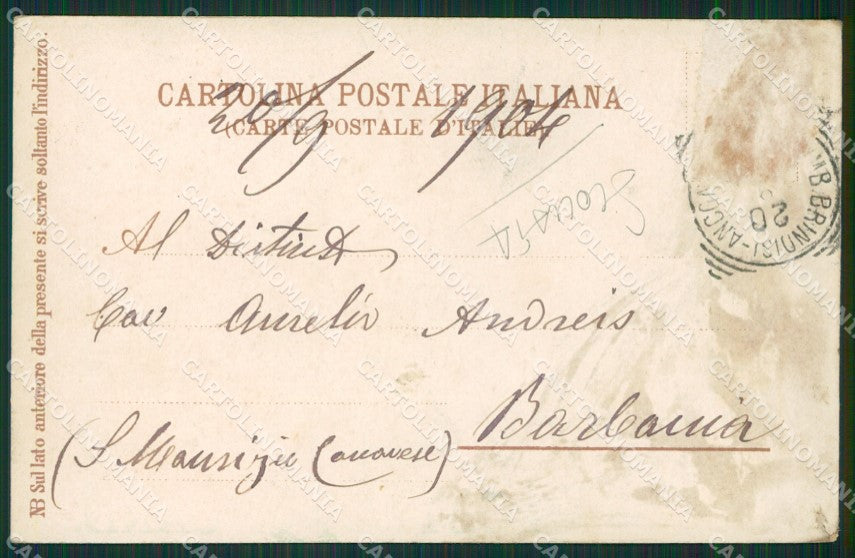 CARTOLINA POSTALE ITALIANA
(CARTE POSTALE D'ITALIE)
20/9 1904
SLOVATA
AMB. BRINDISI-ANCONA
20
Al Distinto
Cav Aurelio Andreis
Barbania
(S. Maurizio Canavese)
NB Sul lato anteriore della presente si scrive soltanto l'indirizzo.
CARTOLINOMANIA